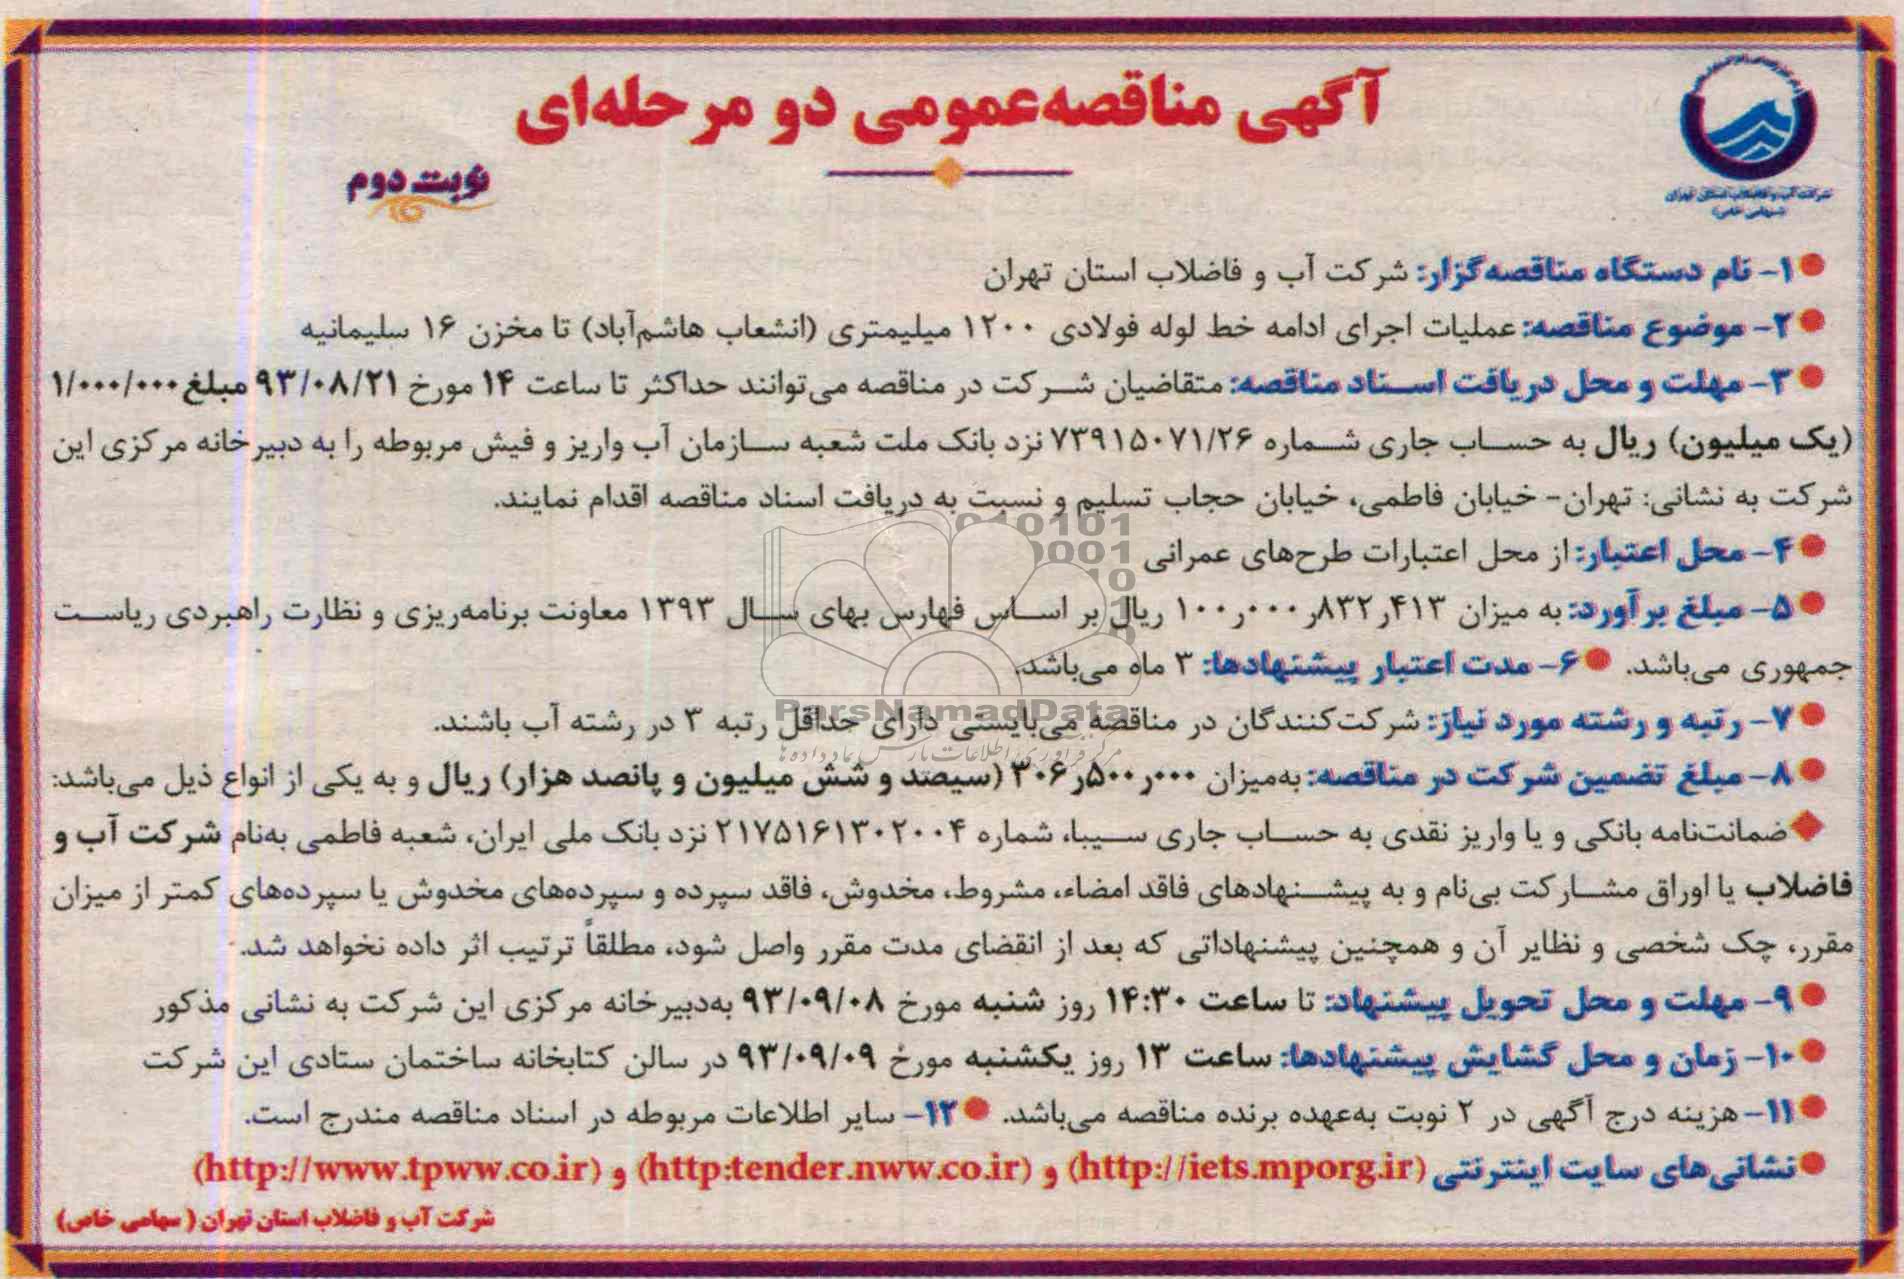 آگهی مناقصه‌عمومی دو مرحله‌ای
نوبت دوم
شرکت آب و فاضلاب استان تهران
(سهامی خاص)
۱- نام دستگاه مناقصه‌گزار: شرکت آب و فاضلاب استان تهران
۲- موضوع مناقصه: عملیات اجرای ادامه خط لوله فولادی ۱۲۰۰ میلیمتری (انشعاب هاشم‌آباد) تا مخزن ۱۶ سلیمانیه
۳- مهلت و محل دریافت اسناد مناقصه: متقاضیان شرکت در مناقصه می‌توانند حداکثر تا ساعت ۱۴ مورخ ۹۳/۰۸/۲۱ مبلغ ۱/۰۰۰/۰۰۰
(یک میلیون) ریال به حساب جاری شماره ۷۳۹۱۵۰۷۱/۲۶ نزد بانک ملت شعبه سازمان آب واریز و فیش مربوطه را به دبیرخانه مرکزی این
شرکت به نشانی: تهران- خیابان فاطمی، خیابان حجاب تسلیم و نسبت به دریافت اسناد مناقصه اقدام نمایند.
۴- محل اعتبار: از محل اعتبارات طرح‌های عمرانی
۵- مبلغ برآورد: به میزان ۱۰۰ر۰۰۰ر۸۳۲ر۴۱۳ ریال بر اساس فهارس بهای سال ۱۳۹۳ معاونت برنامه‌ریزی و نظارت راهبردی ریاست
جمهوری می‌باشد. ۶- مدت اعتبار پیشنهادها: ۳ ماه می‌باشد.
۷- رتبه و رشته مورد نیاز: شرکت‌کنندگان در مناقصه می‌بایستی دارای حداقل رتبه ۳ در رشته آب باشند.
۸- مبلغ تضمین شرکت در مناقصه: به‌میزان ۳۰۶ر۵۰۰ر۰۰۰ (سیصد و شش میلیون و پانصد هزار) ریال و به یکی از انواع ذیل می‌باشد:
ضمانت‌نامه بانکی و یا واریز نقدی به حساب جاری سیبا، شماره ۲۱۷۵۱۶۱۳۰۲۰۰۴ نزد بانک ملی ایران، شعبه فاطمی به‌نام شرکت آب و
فاضلاب یا اوراق مشارکت بی‌نام و به پیشنهادهای فاقد امضاء، مشروط، مخدوش، فاقد سپرده و سپرده‌های مخدوش یا سپرده‌های کمتر از میزان
مقرر، چک شخصی و نظایر آن و همچنین پیشنهاداتی که بعد از انقضای مدت مقرر واصل شود، مطلقاً ترتیب اثر داده نخواهد شد.
۹- مهلت و محل تحویل پیشنهاد: تا ساعت ۱۴:۳۰ روز شنبه مورخ ۹۳/۰۹/۰۸ به‌دبیرخانه مرکزی این شرکت به نشانی مذکور
۱۰- زمان و محل گشایش پیشنهادها: ساعت ۱۳ روز یکشنبه مورخ ۹۳/۰۹/۰۹ در سالن کتابخانه ساختمان ستادی این شرکت
۱۱- هزینه درج آگهی در ۲ نوبت به‌عهده برنده مناقصه می‌باشد. ۱۲- سایر اطلاعات مربوطه در اسناد مناقصه مندرج است.
نشانی‌های سایت اینترنتی (http://iets.mporg.ir) و (http:tender.nww.co.ir) و (http://www.tpww.co.ir)
شرکت آب و فاضلاب استان تهران (سهامی خاص)
ParsNamadData